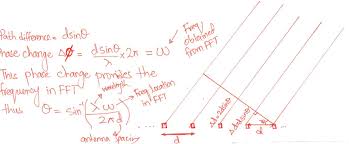 Path difference = dsinθ
Phase change Δφ = dsinθ/λ × 2π = ω
Freq obtained from FFT
This phase change provides the
frequency in FFT
thus θ = sin⁻¹(λω/2πd)
wavelength
Freq location in FFT
antenna spacing
d
Δ=2dsinθ
Δ=dsinθ
d